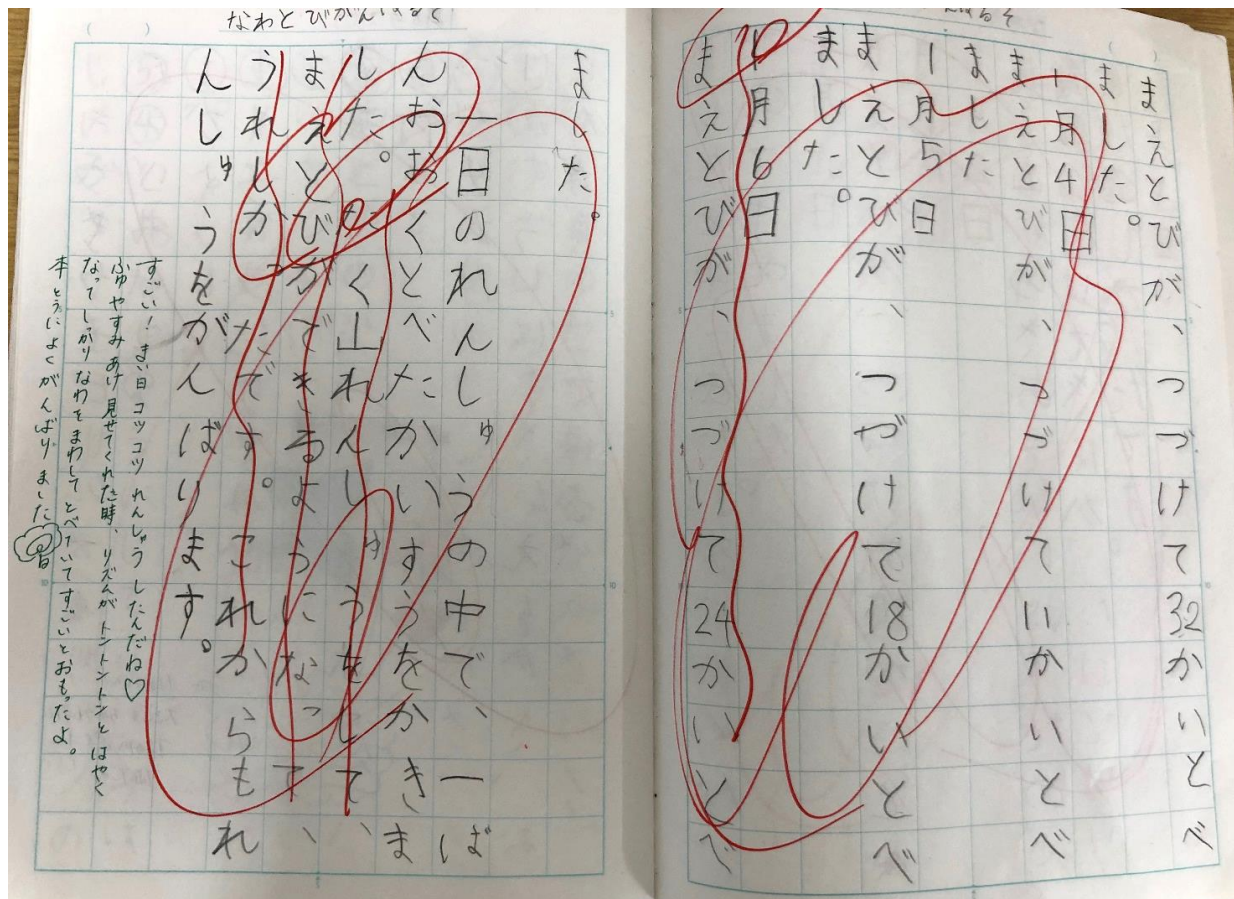 まえとびが、つづけて32かいとべ
ました。
1月4日
まえとびが、つづけて11かいとべ
ました
1月5日
まえとびが、つづけて18かいとべ
ました。
1月6日
まえとびが、つづけて24かいとべ
なわとびがんばるぞ
ました。
一日のれんしゅうの中で、一ば
んおおくとべたかいすうをかきま
した。たく山れんしゅうをして、
まえとびができるようになって、
うれしかったです。これからもれ
んしゅうをがんばります。
すごい!まい日コツコツれんしゅうしたんだね♡
ふゆやすみあけ見せてくれた時、リズムがトントントンとはやく
なってしっかりなわをまわしてとべていてすごいとおもったよ。
本とうによくがんばりました